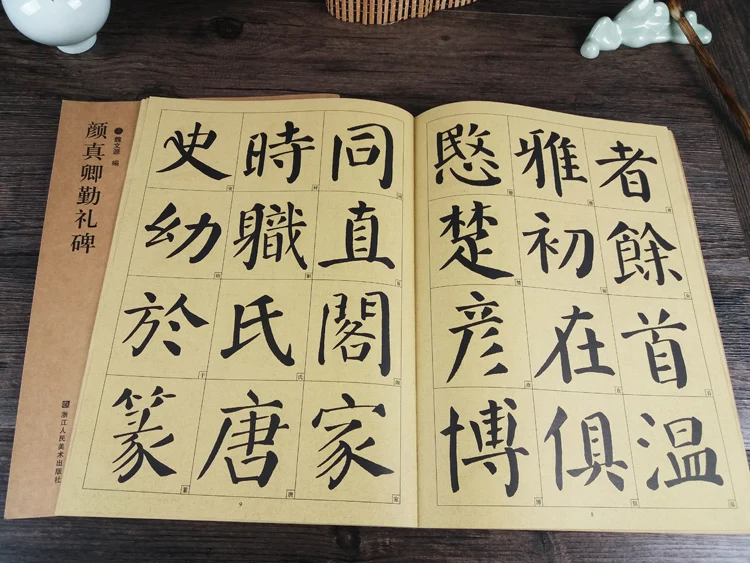 颜真卿勤礼碑
魏文源 编
浙江人民美术出版社
者餘首温
雅初在俱
愍楚彦博
8
同直閣家
時職氏唐
史幼於篆
9